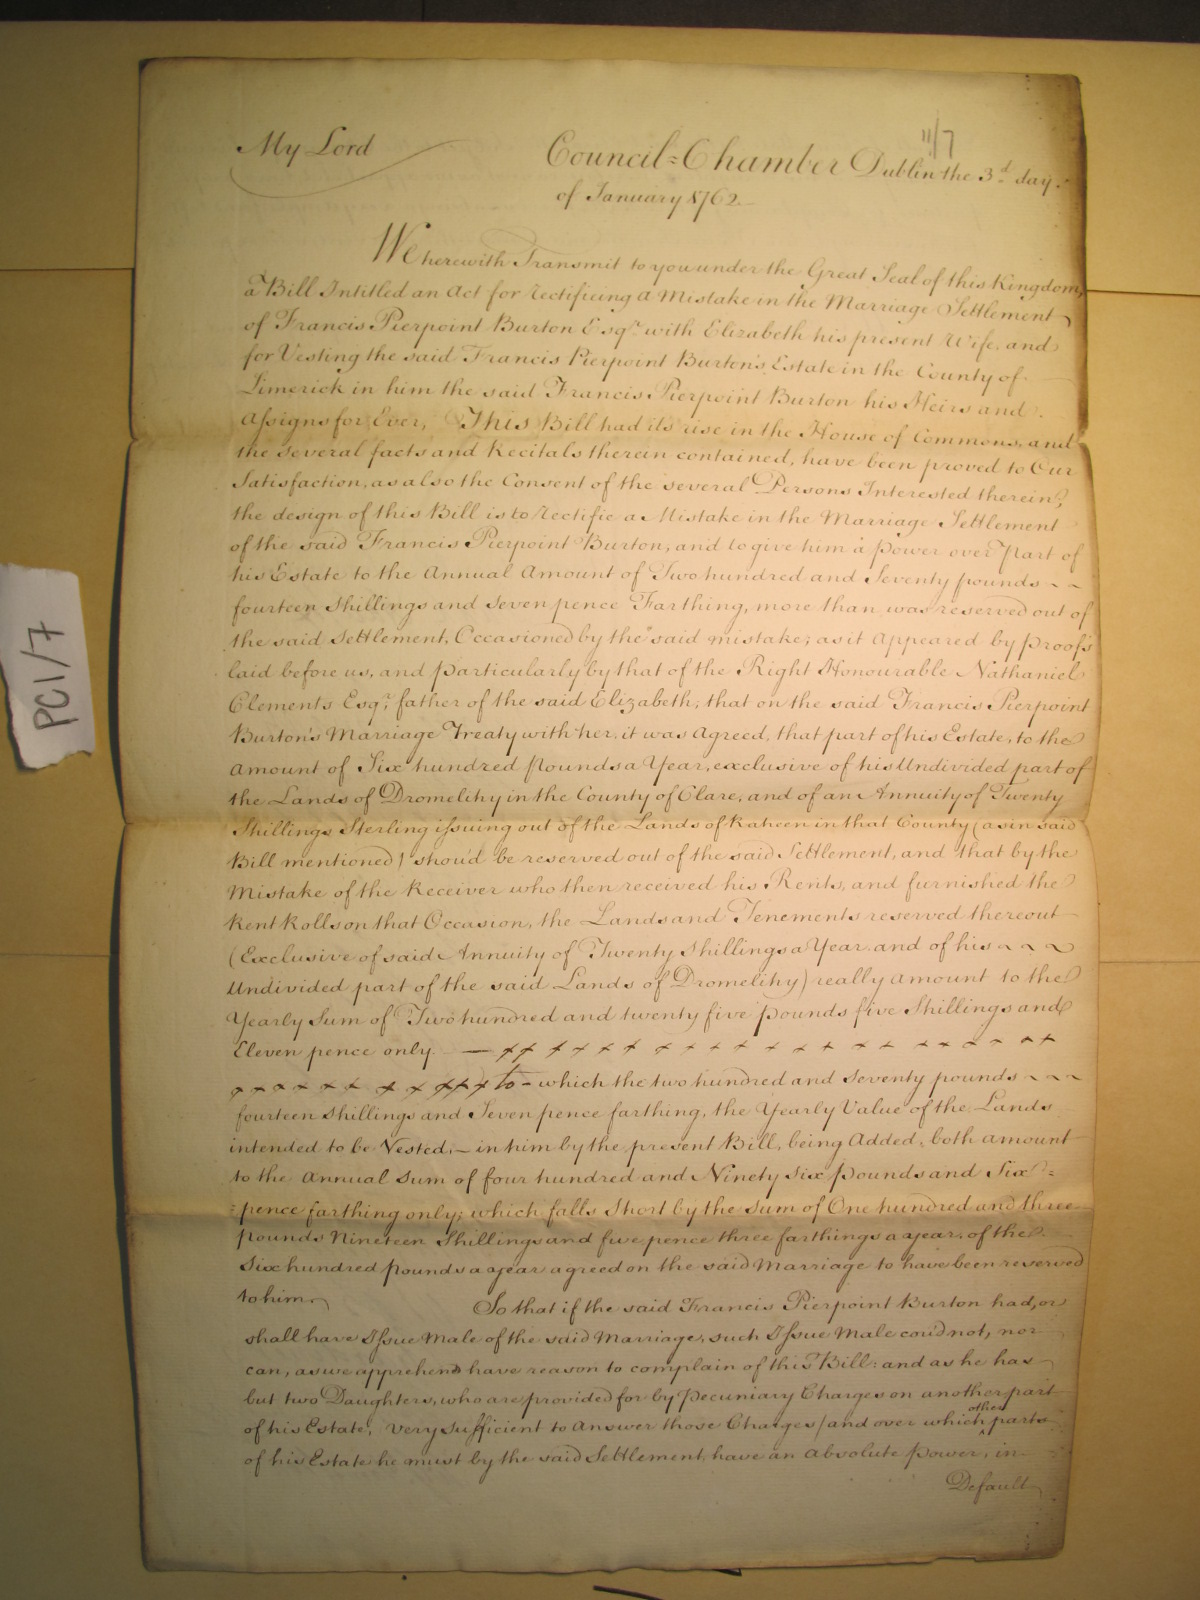 11/7
My Lord
Council=Chamber Dublin the 3d. day
of January 1762
We herewith Transmit to you under the Great Seal of this Kingdom,
a Bill Intitled an Act for Rectificing a Mistake in the Marriage Settlement
of Francis Pierpoint Burton Esqr. with Elizabeth his present Wife, and
for Vesting the said Francis Pierpoint Burton's Estate in the County of
Limerick in him the said Francis Pierpoint Burton his Heirs and
Assigns for Ever, This Bill had its rise in the House of Commons, and
the several facts and Recitals therein contained, have been proved to Our
Satisfaction, as also the Consent of the several Persons Interested therein;
the design of this Bill is to Rectifie a Mistake in the Marriage Settlement
of the said Francis Pierpoint Burton, and to give him a power over Part of
his Estate to the Annual Amount of Two hundred and Seventy pounds ~ ~
fourteen Shillings and Seven pence Farthing, more than was reserved out of
the said Settlement, Occasioned by the said mistake; as it Appeared by proofs
laid before us, and particularly by that of the Right Honourable Nathaniel
Clements Esqr. father of the said Elizabeth; that on the said Francis Pierpoint
Burton's Marriage Treaty with her, it was Agreed, that part of his Estate, to the
amount of Six hundred Pounds a Year, exclusive of his Undivided part of
the Lands of Dromelihy in the County of Clare, and of an Annuity of Twenty
Shillings Sterling issuing out of the Lands of Raheen in that County (as in said
Bill mentioned) shou'd be reserved out of the said Settlement, and that by the
Mistake of the Receiver who then received his Rents, and furnished the
Rent Rolls on that Occasion, the Lands and Tenements reserved thereout
(Exclusive of said Annuity of Twenty Shillings a Year and of his ~ ~ ~
Undivided part of the said Lands of Dromelihy) really amount to the
Yearly Sum of Two hundred and twenty five pounds five Shillings and
Eleven pence only.
to - which the two hundred and Seventy pounds ~ ~ ~
fourteen Shillings and Seven pence farthing, the Yearly Value of the Lands
intended to be Vested, - in him by the present Bill, being Added, both amount
to the Annual Sum of four hundred and Ninety Six pounds and Six=
=pence farthing only; which falls Short by the Sum of One hundred and three
pounds Nineteen Shillings and five pence three farthings a year, of the
Six hundred pounds a year agreed on the said Marriage to have been reserved
to him.
So that if the said Francis Pierpoint Burton had, or
shall have Issue Male of the said Marriage, such Issue Male cou'd not, nor
can, as we apprehend have reason to complain of this Bill: and as he has
but two Daughters, who are provided for by Pecuniary Charges on another part
of his Estate, Very sufficient to Answer those Charges / and over which other parts
of his Estate he must by the said Settlement have an Absolute Power, in
Default
PC1/7